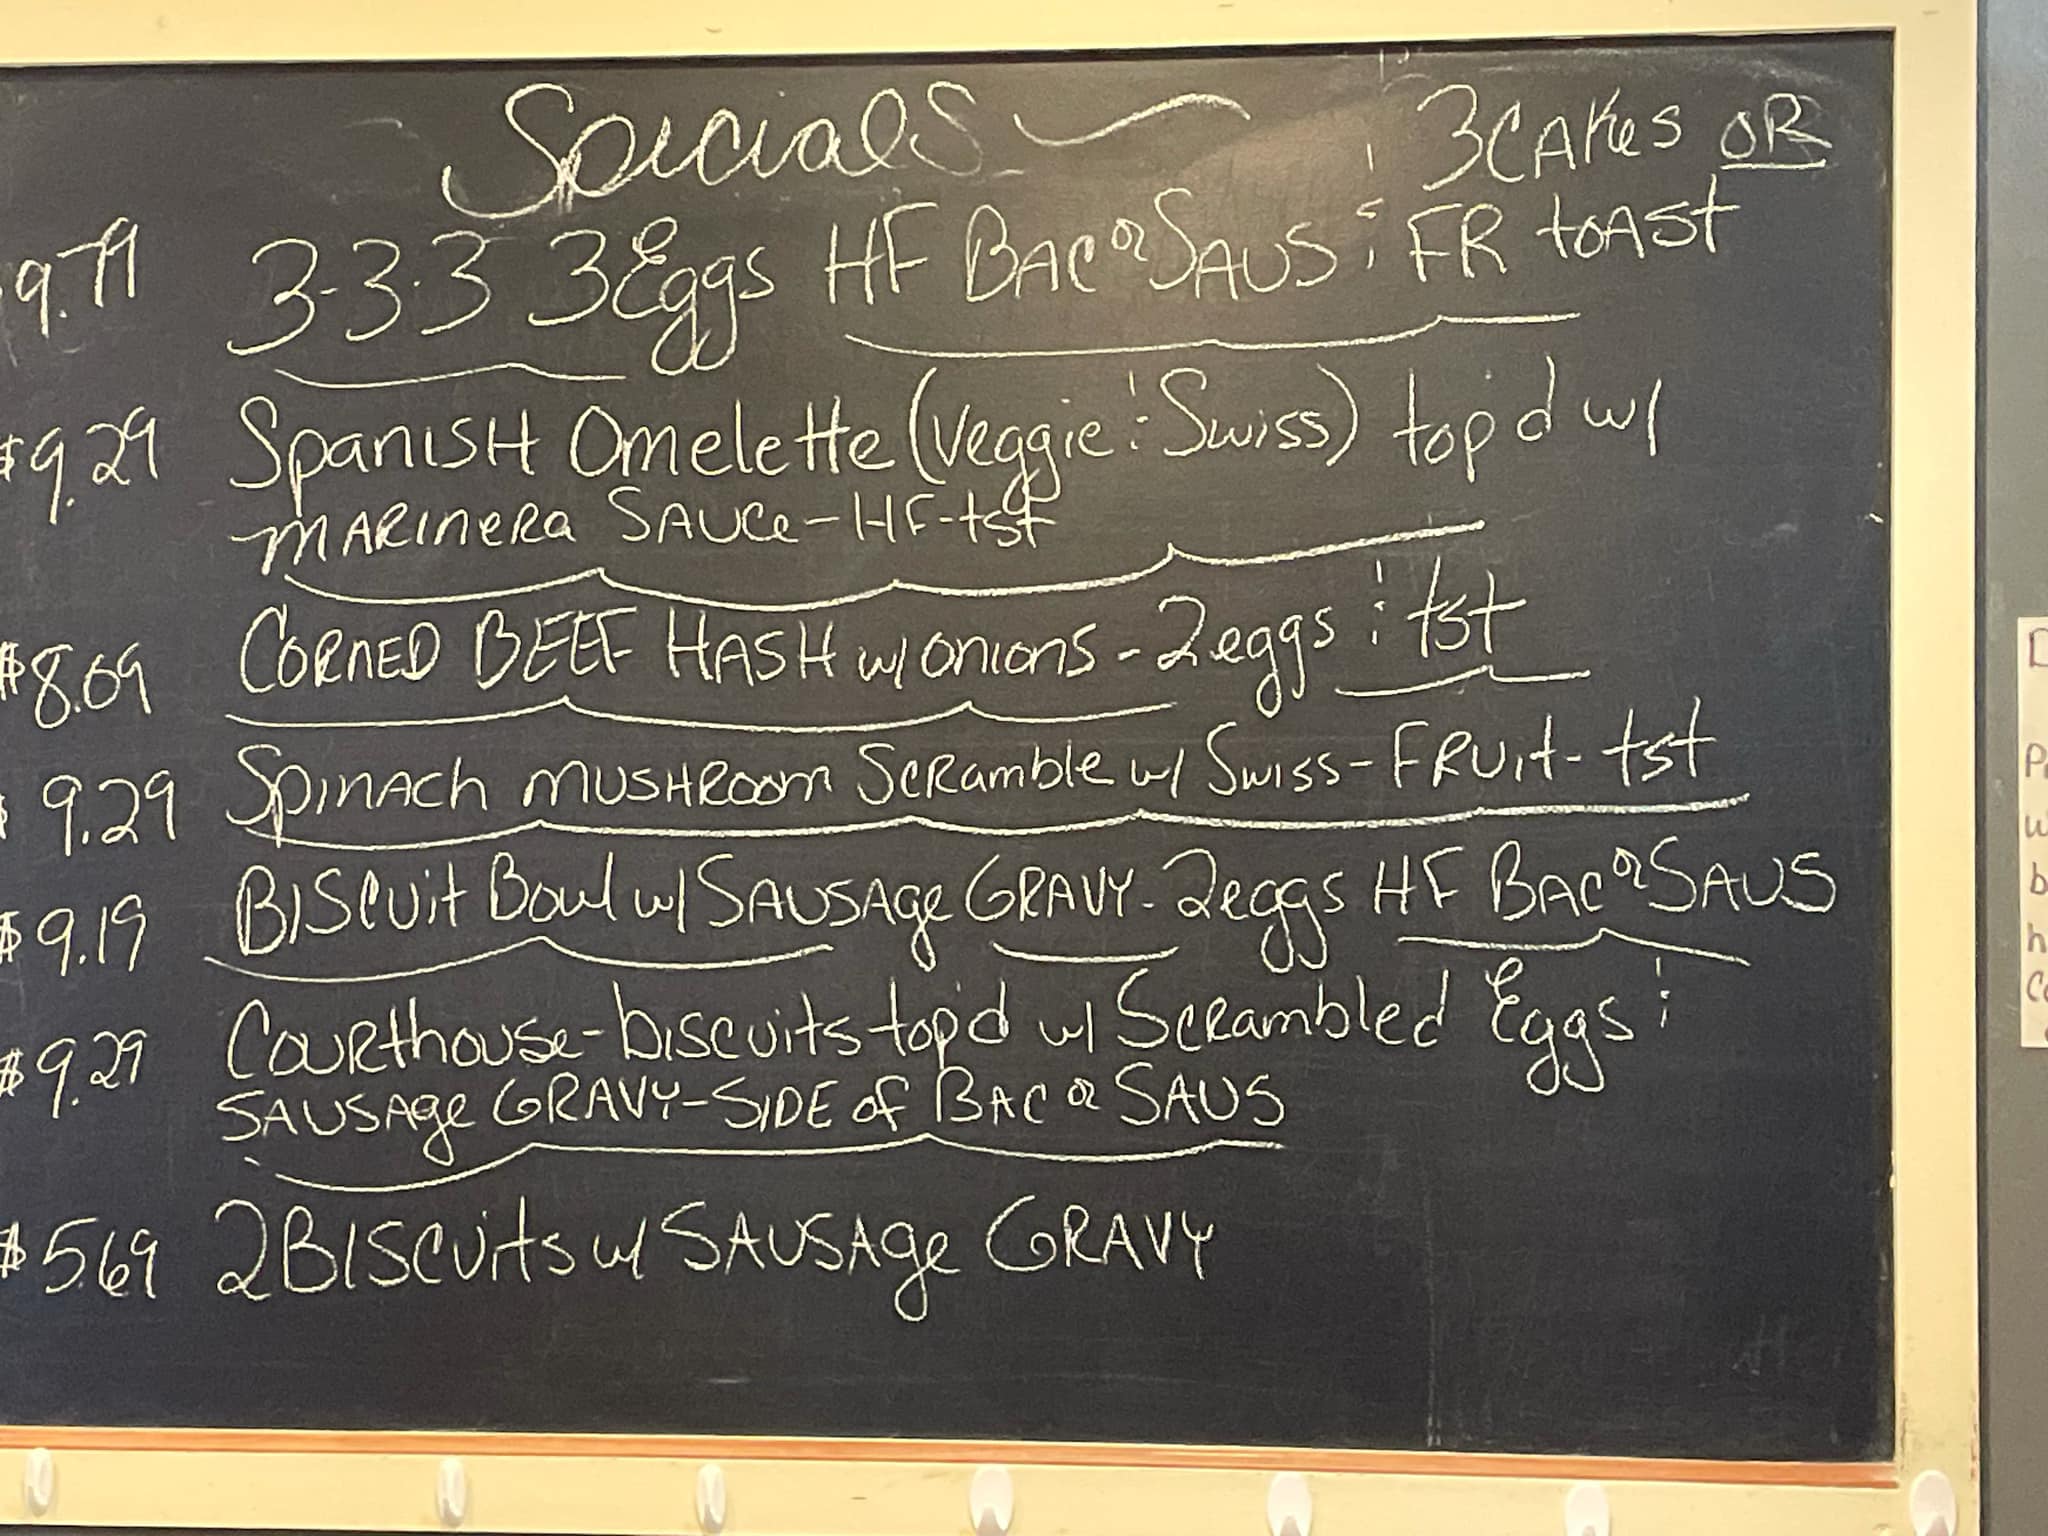 Specials
3 CAKes OR
9.79 3-3-3 3 Eggs HF BAC or SAUS & FR toAst
$9.29 SpanisH Omelette (veggie & Swiss) top'd w/
mARineRa SAUCe-HF-tst
$8.09 CORnED BEEF HASH w/ onions - 2 eggs & tst
$ 9.29 SpinAch mUSHRoom ScRamble w/ Swiss-FRUit-tst
$9.19 BISCUit Bowl w/ SAUSAge GRAVY-2 eggs HF BAC or SAUS
$9.29 COURthouse-biscuits top'd w/ ScRambled Eggs &
SAUSAge GRAVY-SIDE of BAC or SAUS
$5.69 2 BISCUits w/ SAUSAge GRAVY